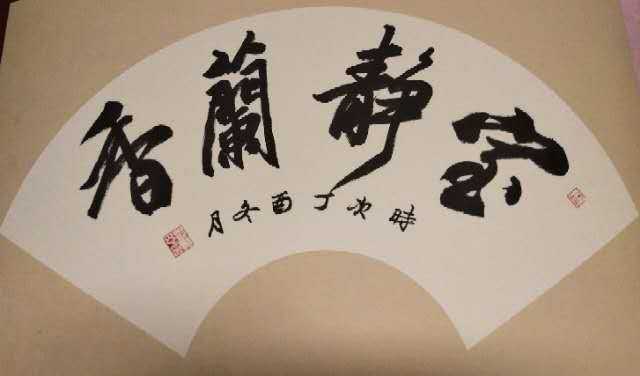 室靜蘭香
時次丁酉冬月